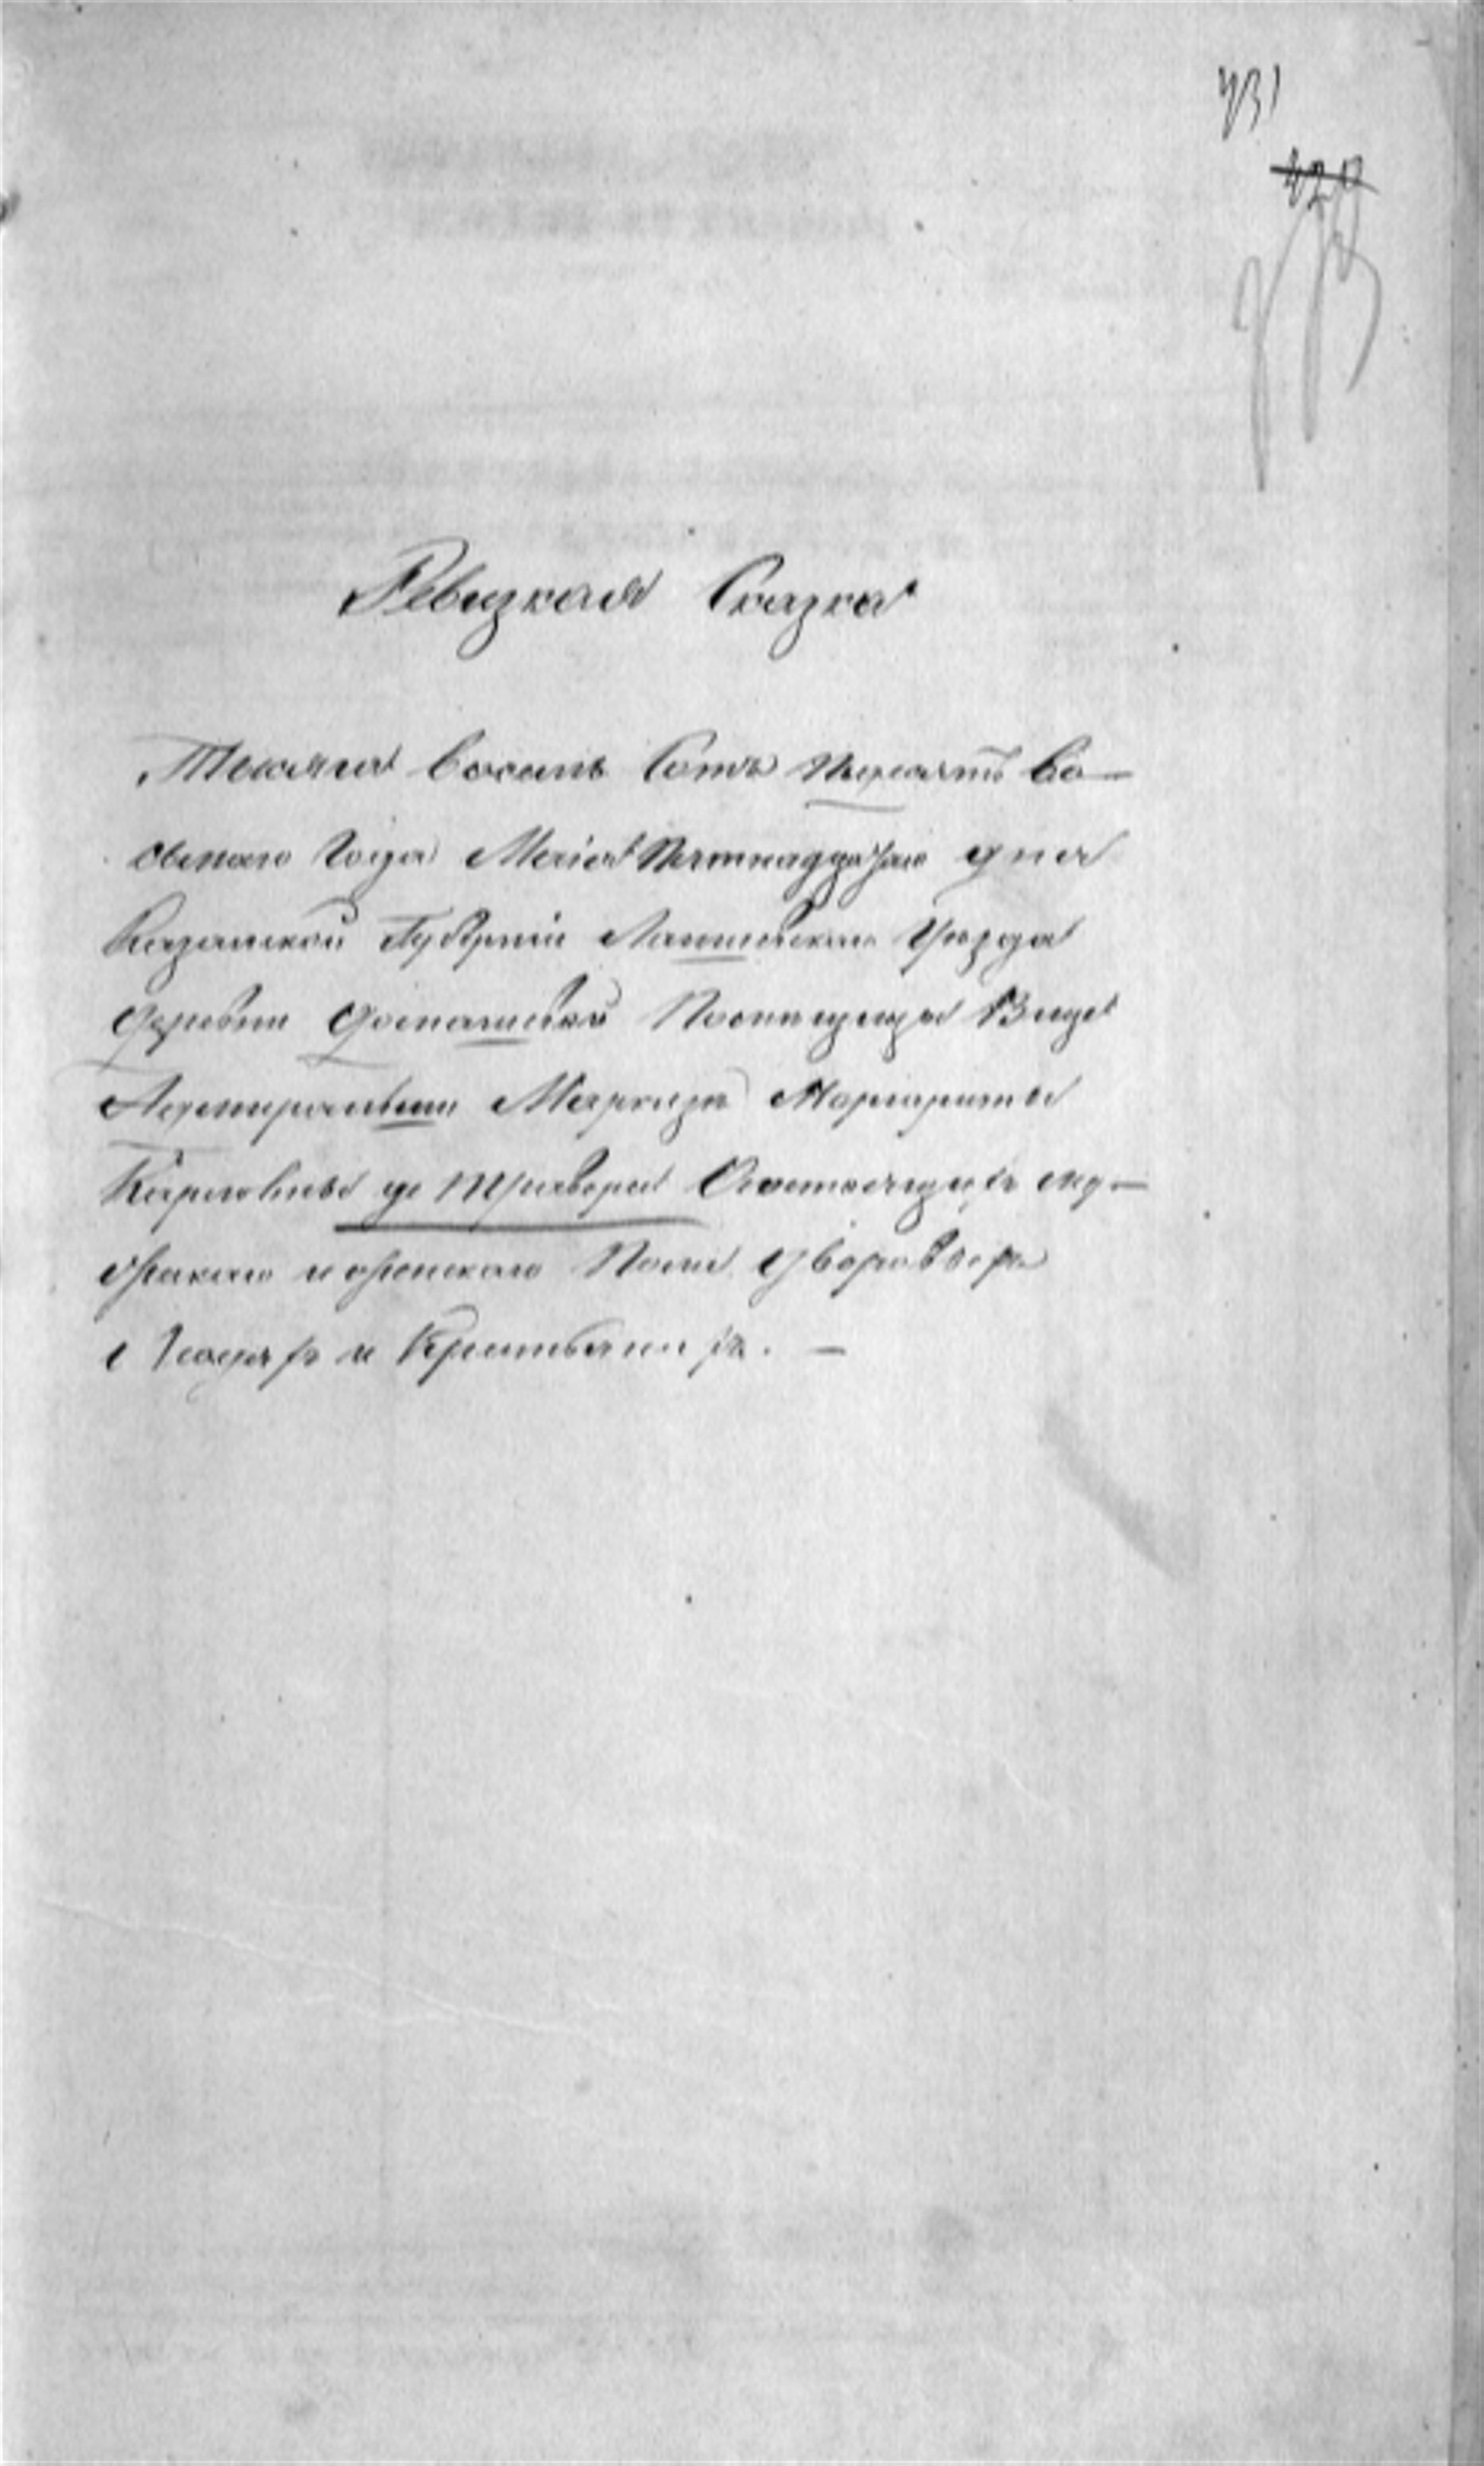 431
Ревизская Сказка
Тысяча восемь сотъ пятьдесятъ во-
сьмаго года Маія Пятнадцатаго дня
Казанской Губерніи Лаишевскаго Уѣзда
Деревни Помѣщицы Вице
Адмиральши Маркизы Маргариты
Карловны де Траверсе Состоящихъ му-
жескаго и женскаго пола дворовыхъ
людяхъ и Крестьянахъ. —